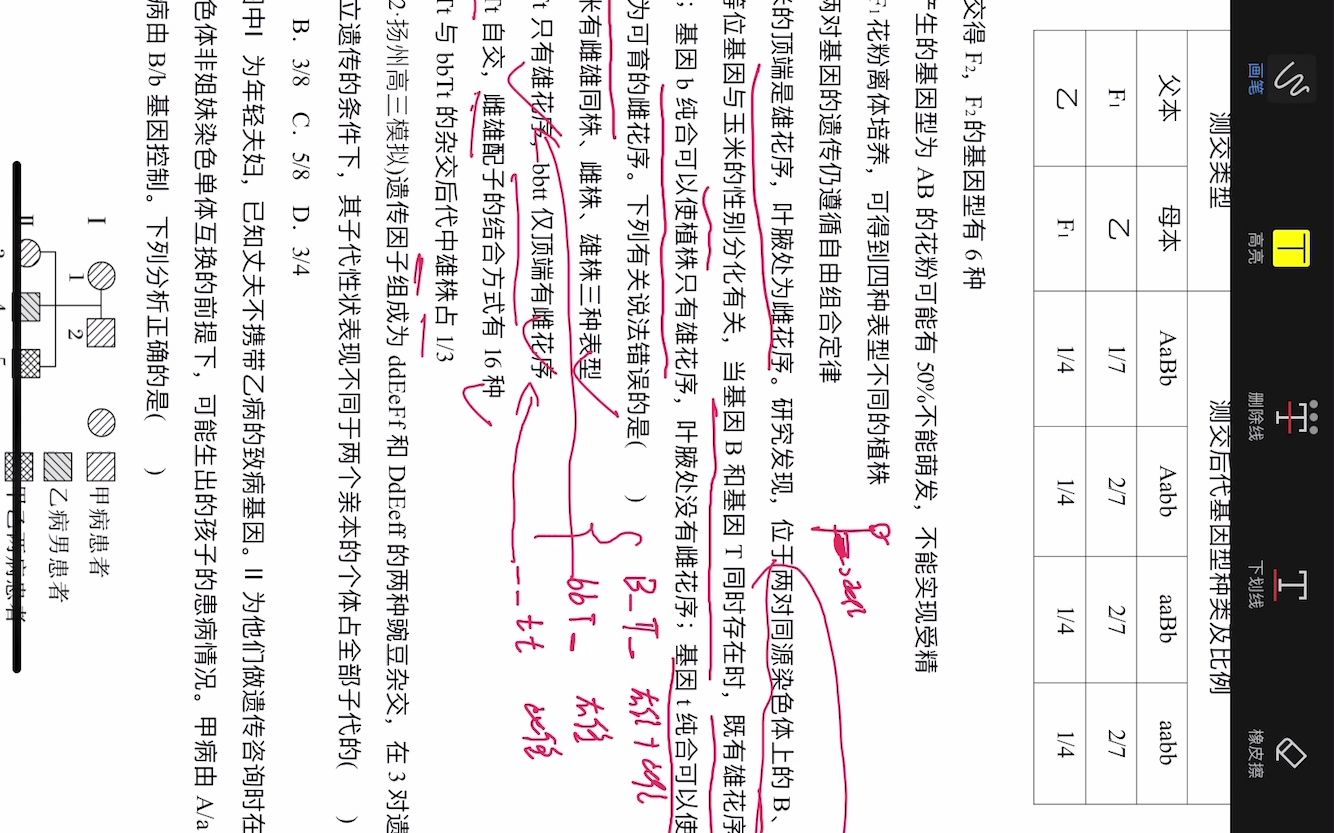 画笔
高亮
删除线
下划线
橡皮擦
测交类型 测交后代基因型种类及比例
父本 母本 AaBb Aabb aaBb aabb
F₁ 乙 1/7 2/7 2/7 2/7
乙 F₁ 1/4 1/4 1/4 1/4
交得 F₂，F₂的基因型有 6 种
产生的基因型为 AB 的花粉可能有 50%不能萌发，不能实现受精
F₁花粉离体培养，可得到四种表型不同的植株
两对基因的遗传仍遵循自由组合定律
米的顶端是雄花序，叶腋处为雌花序。研究发现，位于两对同源染色体上的 B、
等位基因与玉米的性别分化有关，当基因 B 和基因 T 同时存在时，既有雄花序
；基因 b 纯合可以使植株只有雄花序，叶腋处没有雌花序；基因 t 纯合可以使
为可育的雌花序。下列有关说法错误的是( )
B_T_
米有雌雄同株、雌株、雄株三种表型
bbT_
t 只有雄花序，bbtt 仅顶端有雌花序
__tt
Tt 自交，雌雄配子的结合方式有 16 种
Tt 与 bbTt 的杂交后代中雄株占 1/3
2·扬州高三模拟)遗传因子组成为 ddEeFf 和 DdEeff 的两种豌豆杂交，在 3 对遗
立遗传的条件下，其子代性状表现不同于两个亲本的个体占全部子代的( )
B．3/8 C．5/8 D．3/4
图中Ⅰ 为年轻夫妇，已知丈夫不携带乙病的致病基因。Ⅱ 为他们做遗传咨询时在
色体非姐妹染色单体互换的前提下，可能生出的孩子的患病情况。甲病由 A/a
病由 B/b 基因控制。下列分析正确的是( )
Ⅰ 1 2 甲病患者
乙病男患者
Ⅱ 甲乙两病患者